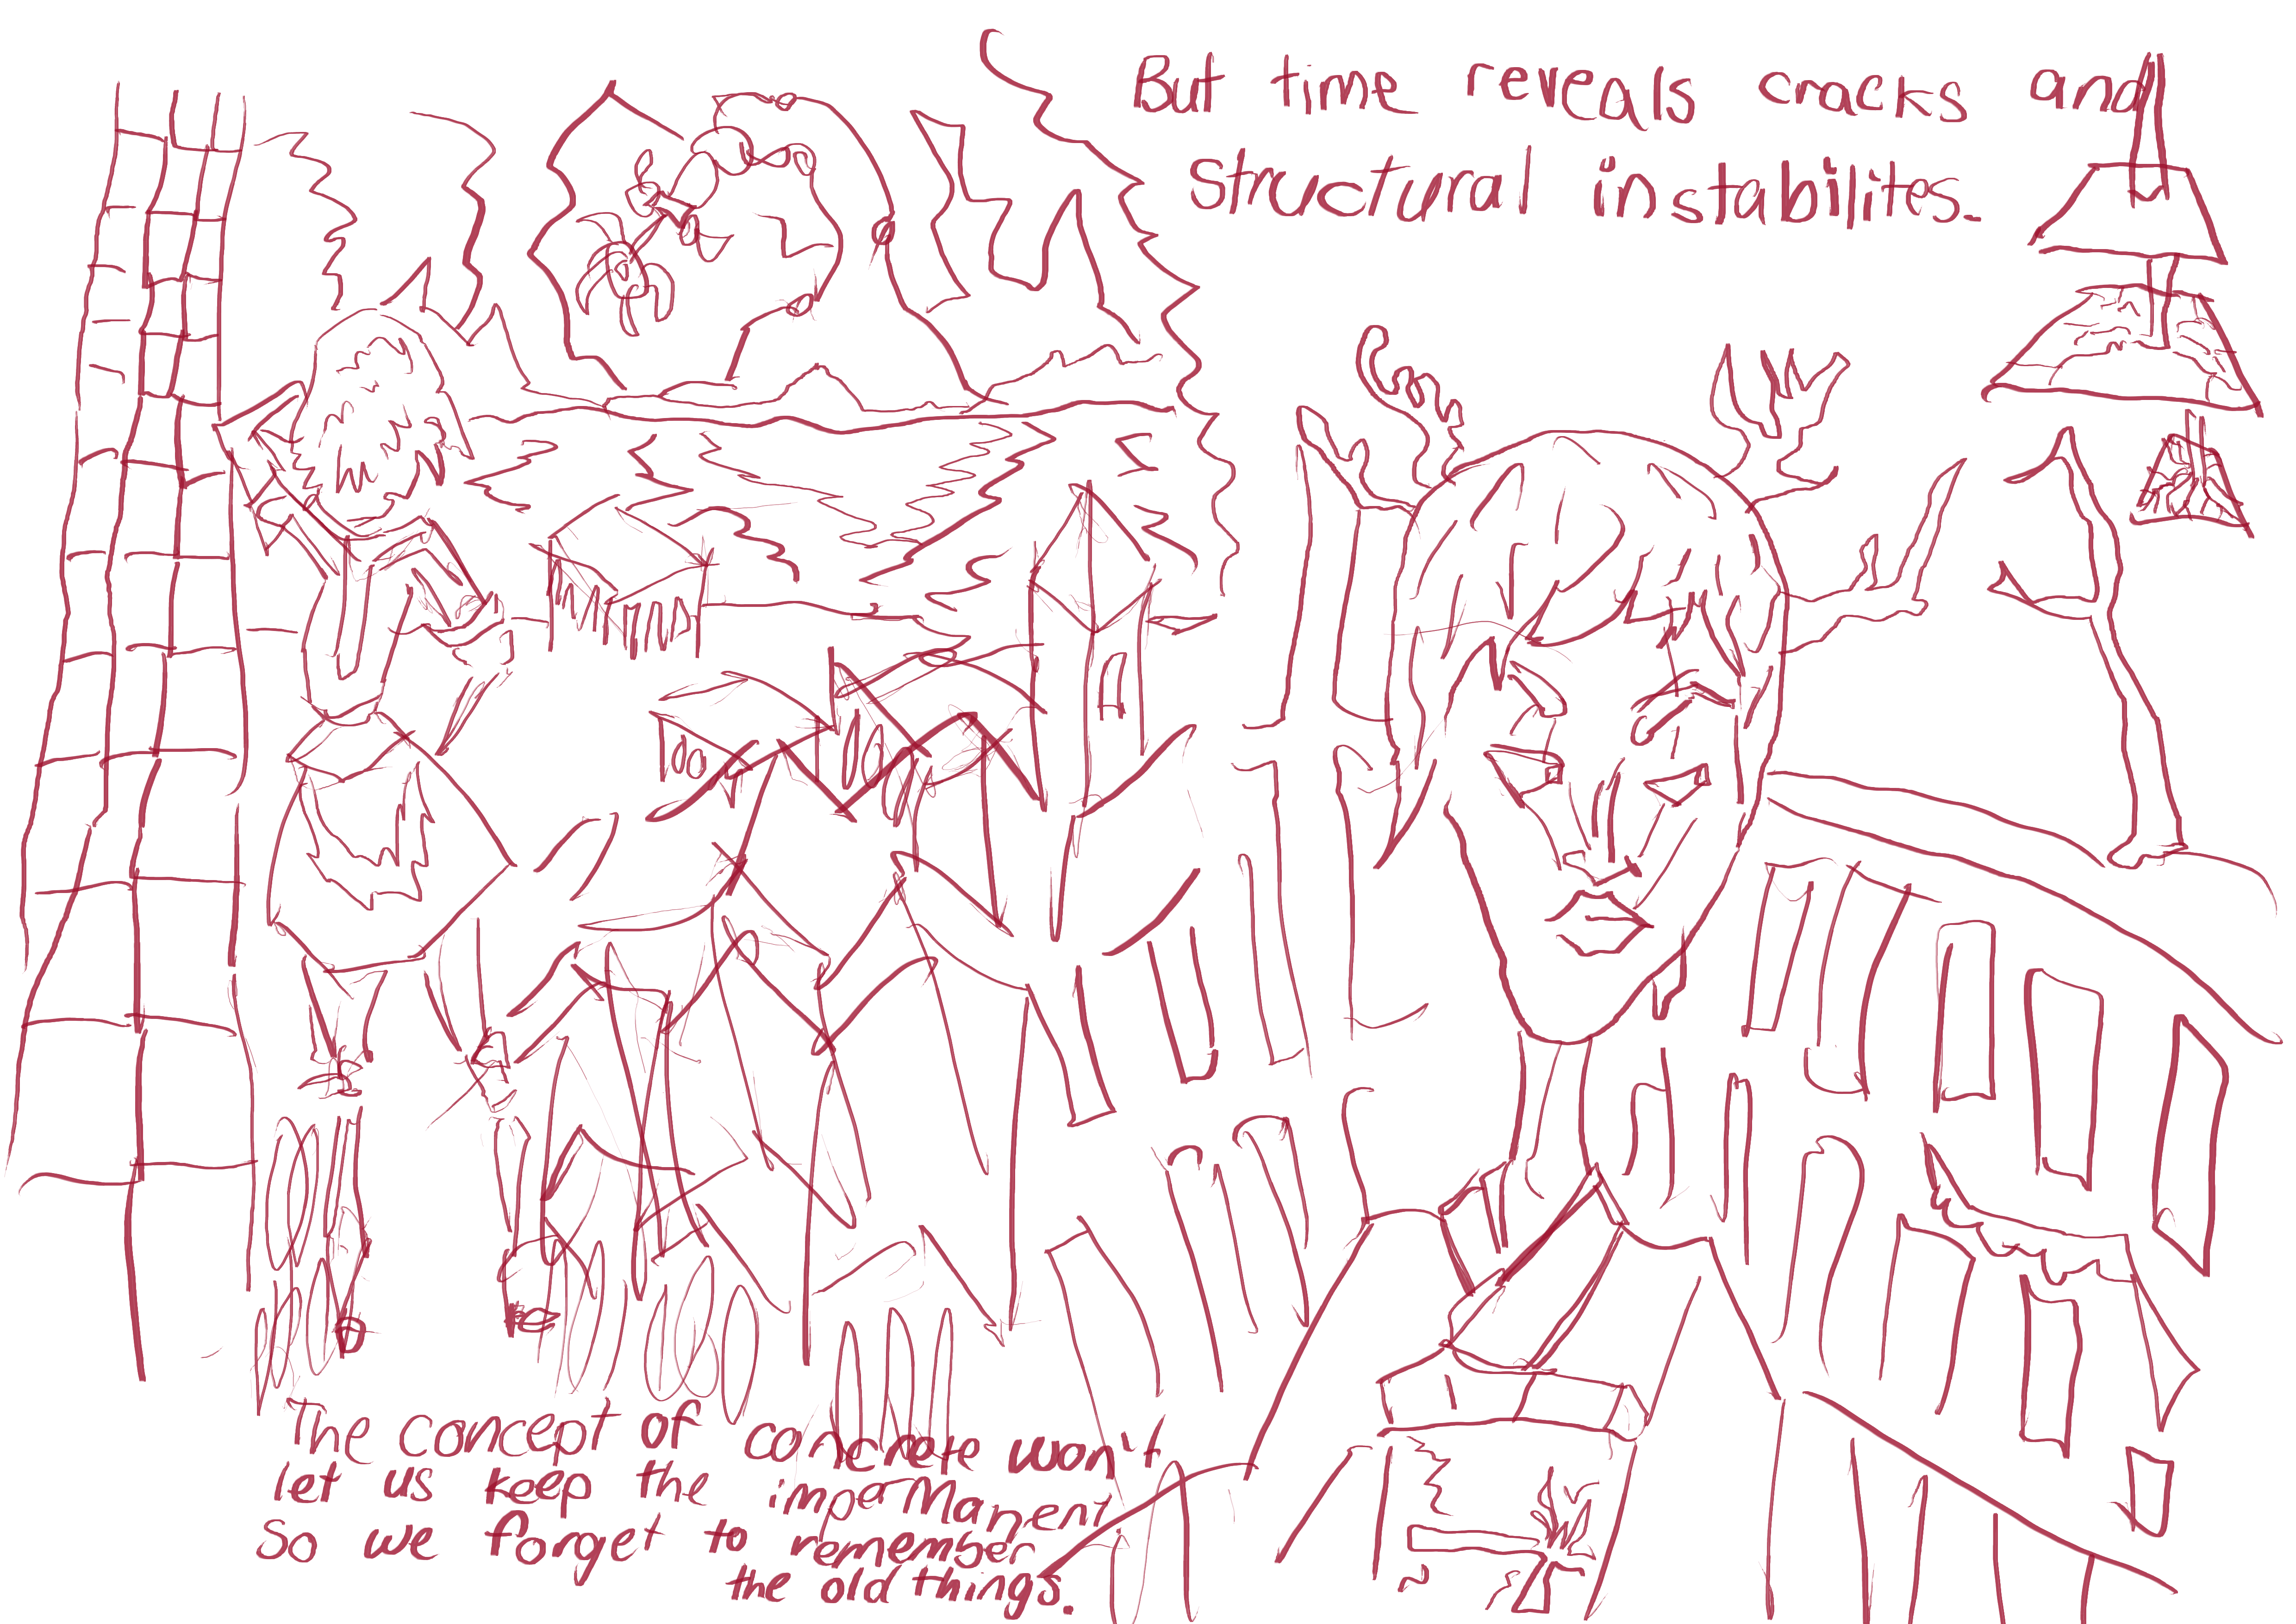 But time reveals cracks and
structural instabilites.
The concept of concrete won't
let us keep the impermanent
So we forget to remember
the old things.